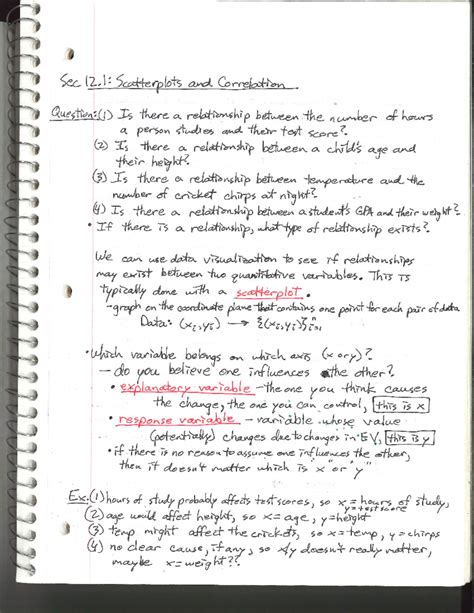 Sec 12.1: Scatterplots and Correlation
Question: (1) Is there a relationship between the number of hours
a person studies and their test score?
(2) Is there a relationship between a child's age and
their height?
(3) Is there a relationship between temperature and the
number of cricket chirps at night?
(4) Is there a relationship between a student's GPA and their weight?
• If there is a relationship, what type of relationship exists?
We can use data visualization to see if relationships
may exist between two quantitative variables. This is
typically done with a scatterplot.
-graph on the coordinate plane that contains one point for each pair of data
Data: (xi, yi) → {(xi, yi)}ⁿi=1
• Which variable belongs on which axis (x or y)?
- do you believe one influences the other?
• explanatory variable - the one you think causes
the change, the one you can control, this is x
• response variable - variable whose value
(potentially) changes due to changes in EV, this is y
• if there is no reason to assume one influences the other,
then it doesn't matter which is "x" or "y"
Ex: (1) hours of study probably affects test scores, so x = hours of study,
y = test score
(2) age would affect height, so x = age, y = height
(3) temp might affect the crickets, so x = temp, y = chirps
(4) no clear cause, if any, so x/y doesn't really matter,
maybe x = weight??